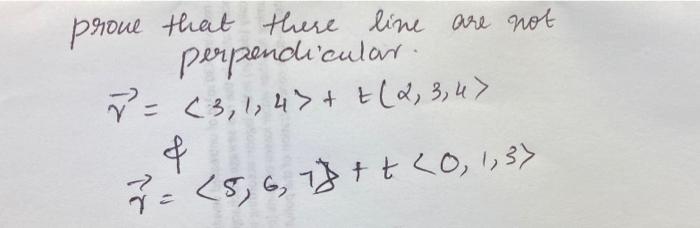 prove that these line are not
perpendicular.
r⃗ = <3,1,4> + t(2,3,4>
&
r⃗ = <5,6,7> + t <0,1,3>